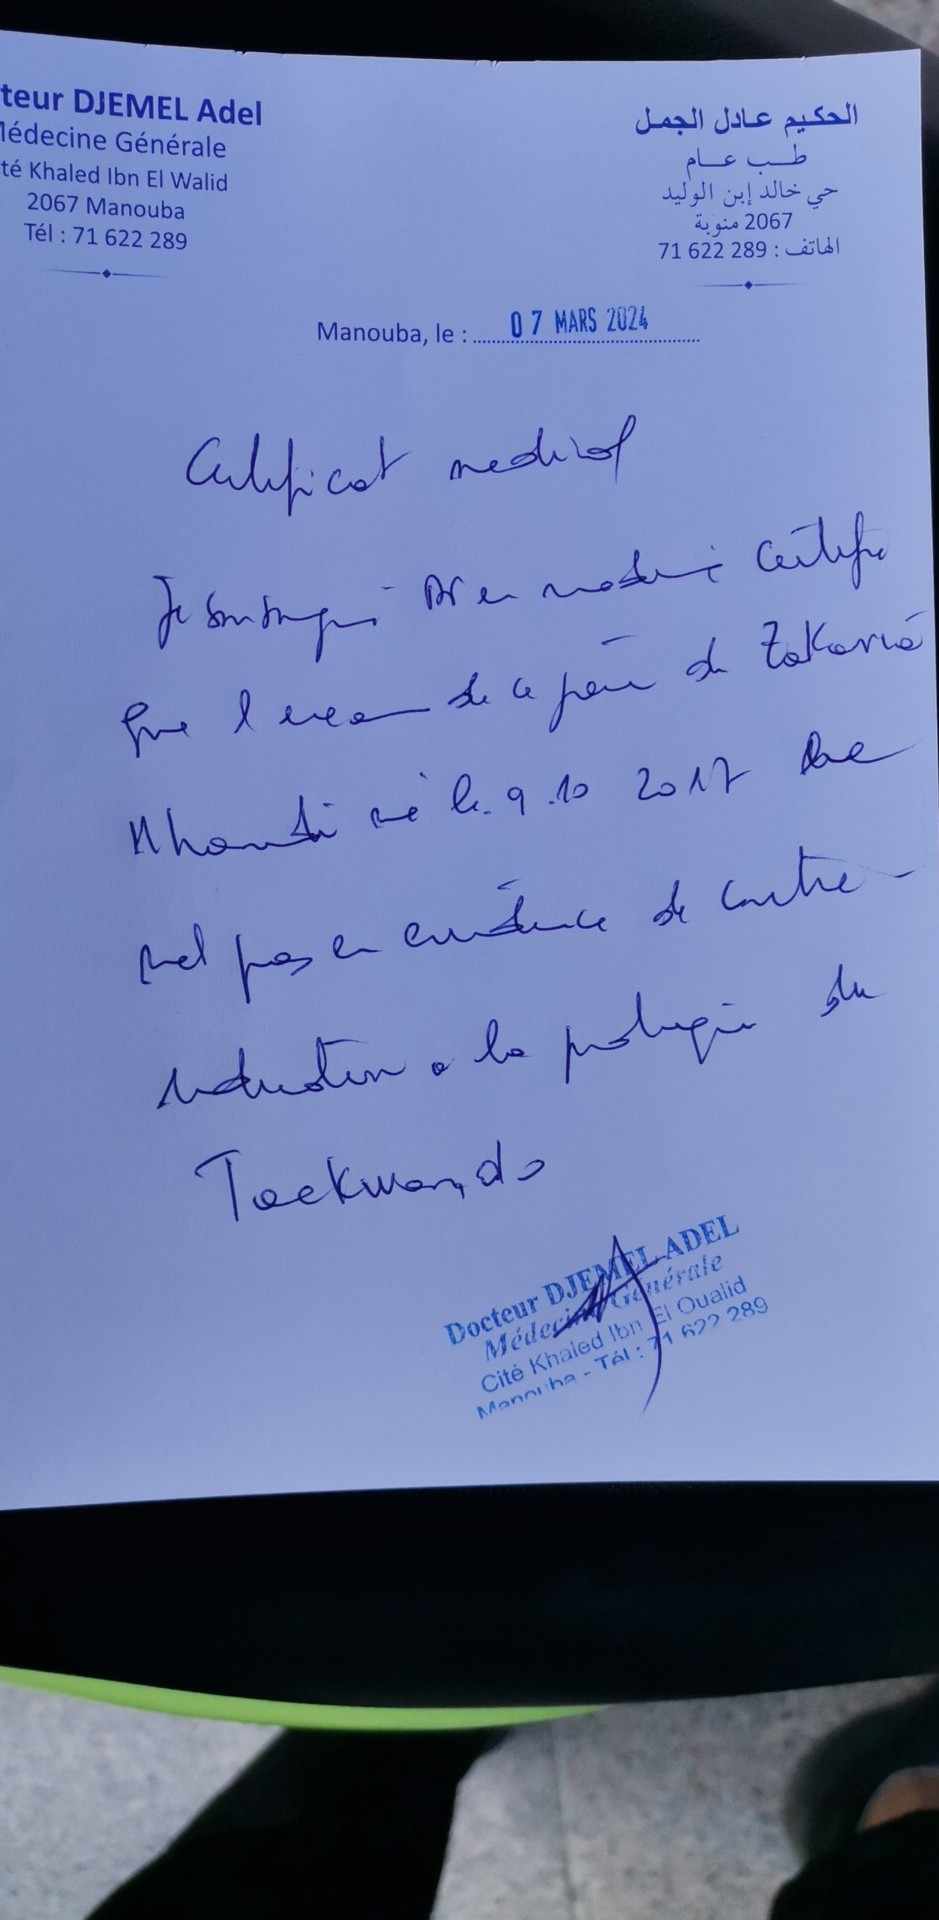 teur DJEMEL Adel
Médecine Générale
té Khaled Ibn El Walid
2067 Manouba
Tél : 71 622 289
الحكيم عادل الجمل
طب عام
حي خالد إبن الوليد
2067 منوبة
الهاتف : 289 622 71
Manouba, le : 07 MARS 2024
Certificat medical
Je soussigné Dr en medecine certifie
que l'examen de ce jour de Zakaria
né le 9.10 2017 ne
met pas en evidence de contre-
indication a la pratique du
Taekwondo
Docteur DJEMEL ADEL
Médecine Générale
Cité Khaled Ibn El Oualid
Manouba - Tél : 71 622 289